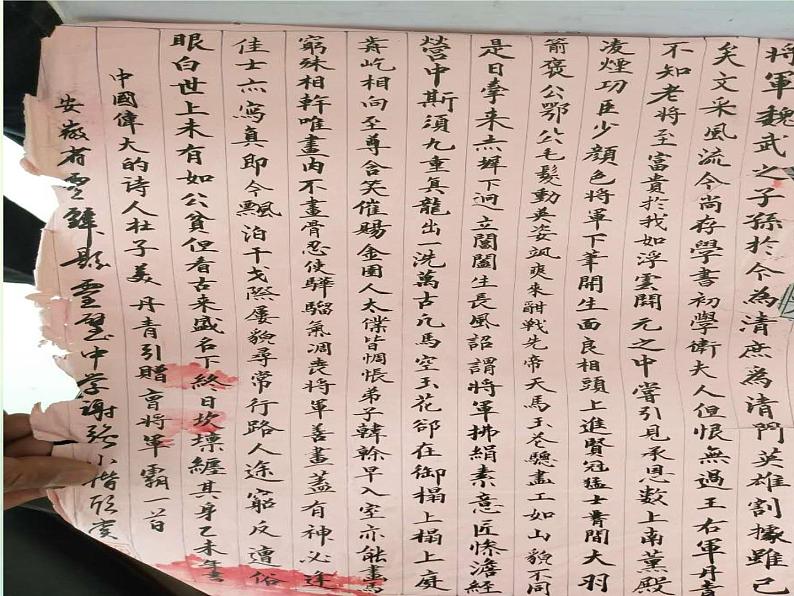 将軍魏武之子孫於今為清庶為清門英雄割據雖已
矣文采風流今尚存學書初學衛夫人但恨無過王右軍丹青
不知老將至富貴於我如浮雲開元之中嘗引見承恩数上南薰殿
凌煙功臣少顏色將軍下筆開生面良相頭上進賢冠猛士膏間大羽
箭褒公鄂公毛髮動英姿颯爽來酣戦先帝天馬玉花驄畫工如山貌不同
是日牽来赤墀下迥立閶闔生長風詔謂將軍拂絹素意匠慘澹經
營中斯須九重真龍出一洗萬古凡馬空玉花卻在御榻上榻上庭
前屹相向至尊含笑催賜金圉人太僕皆惆悵弟子韓幹早入室亦能畫馬
窮殊相幹唯畫肉不畫骨忍使驊騮氣凋喪將軍善畫蓋有神必逢
佳士亦寫真即今飄泊干戈際屢貌尋常行路人途窮反遭俗
眼白世上未有如公貧但看古来盛名下終日坎壈纏其身乙未年書
中國偉大的诗人杜子美丹青引贈曹將軍霸一首
安徽省靈璧縣靈璧中学謝小楷欣賞